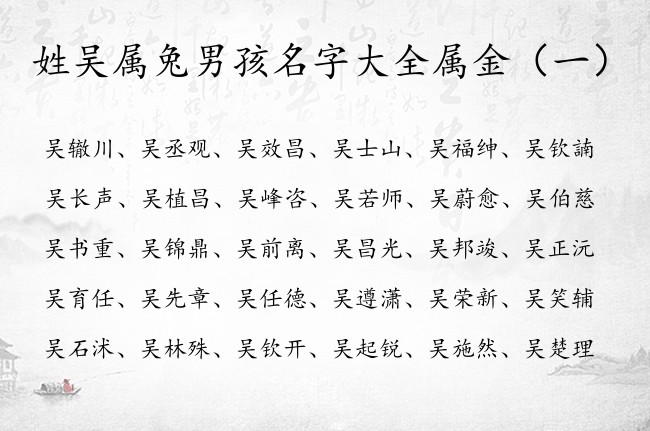 姓吴属兔男孩名字大全属金（一）
吴辙川、吴丞观、吴效昌、吴士山、吴福绅、吴钦諵
吴长声、吴植昌、吴峰咨、吴若师、吴蔚愈、吴伯慈
吴书重、吴锦鼎、吴前离、吴昌光、吴邦竣、吴正沅
吴育任、吴先章、吴任德、吴遵潇、吴荣新、吴笑辅
吴石沭、吴林殊、吴钦开、吴起锐、吴施然、吴楚理